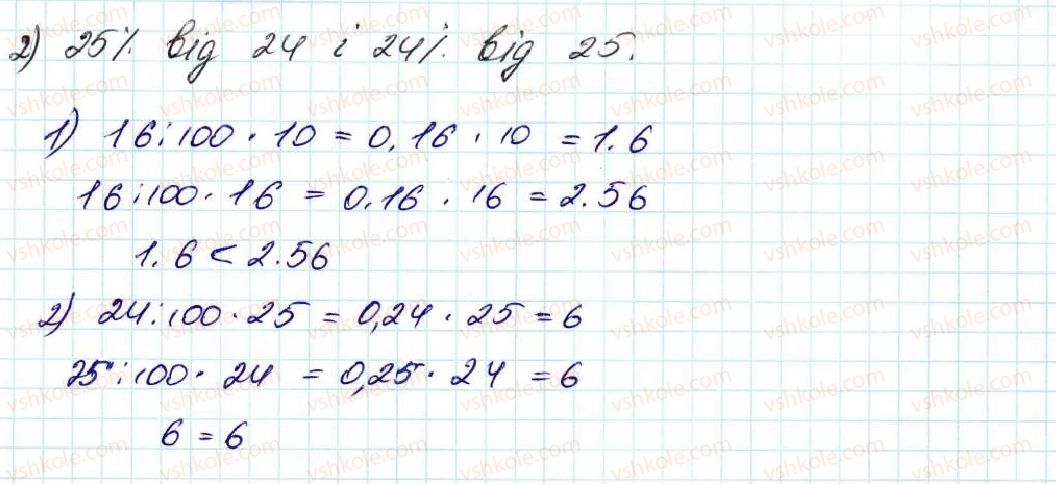 2) 25% від 24 і 24% від 25.
1) 16:100 · 10 = 0,16 · 10 = 1.6
16:100 · 16 = 0.16 · 16 = 2.56
1.6 < 2.56
2) 24:100 · 25 = 0,24 · 25 = 6
25:100 · 24 = 0,25 · 24 = 6
6 = 6
vshkole.com